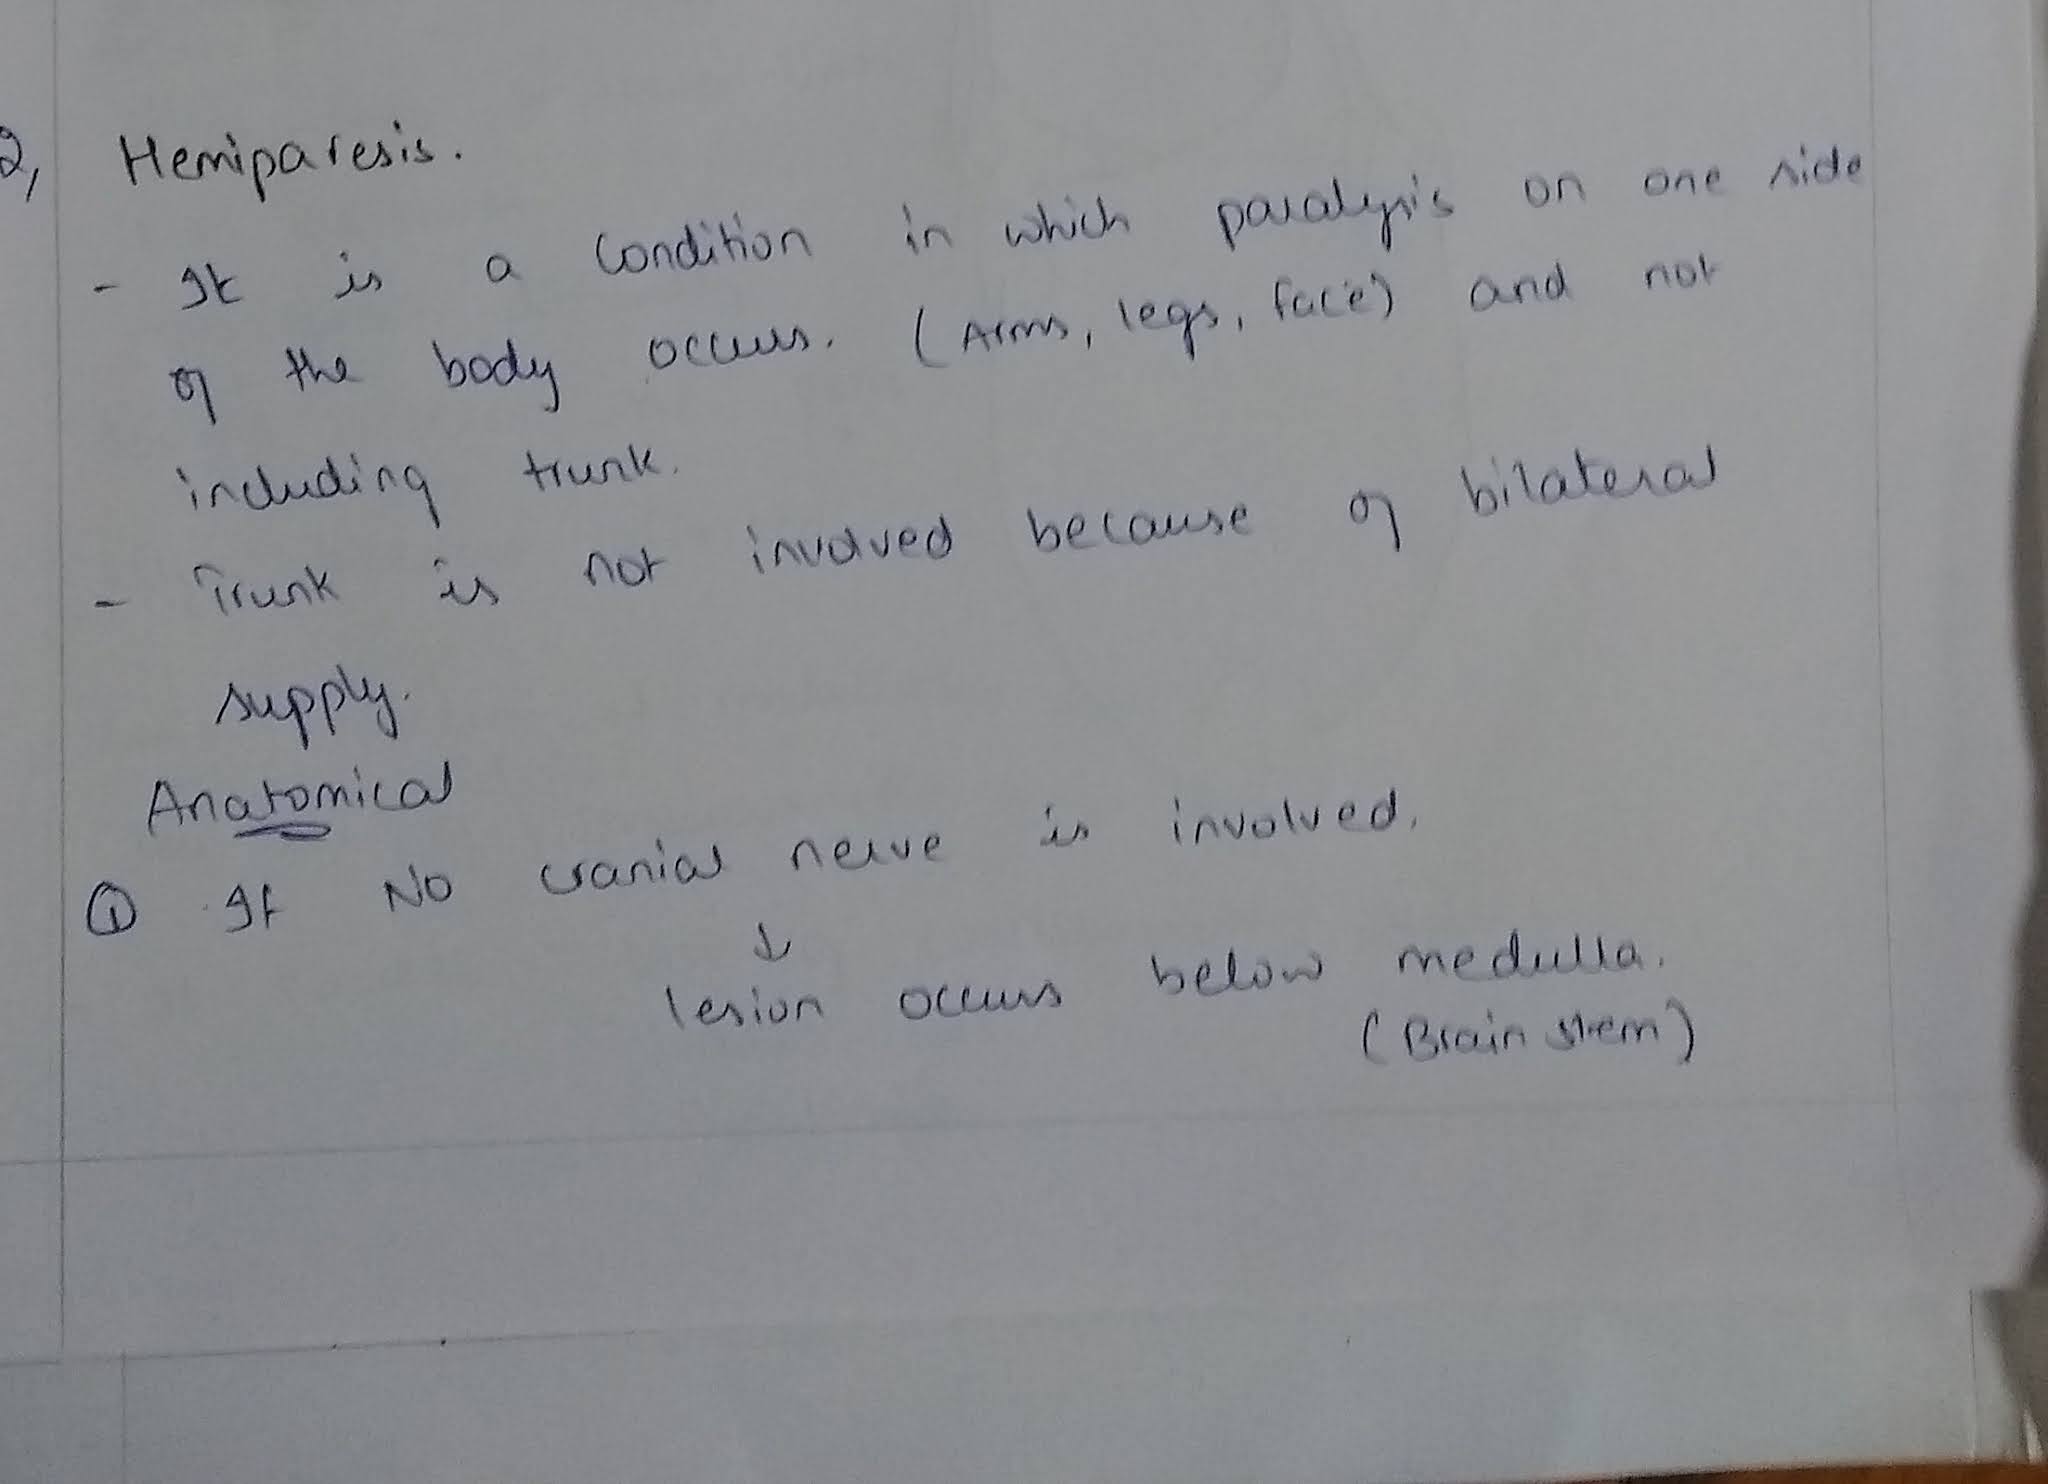 2, Hemiparesis.
- It is a condition in which paralysis on one side
of the body occurs. (Arms, legs, face) and not
including trunk.
- Trunk is not involved because of bilateral
supply.
Anatomical
① If No cranial nerve is involved.
↓
lesion occurs below medulla.
(Brain stem)